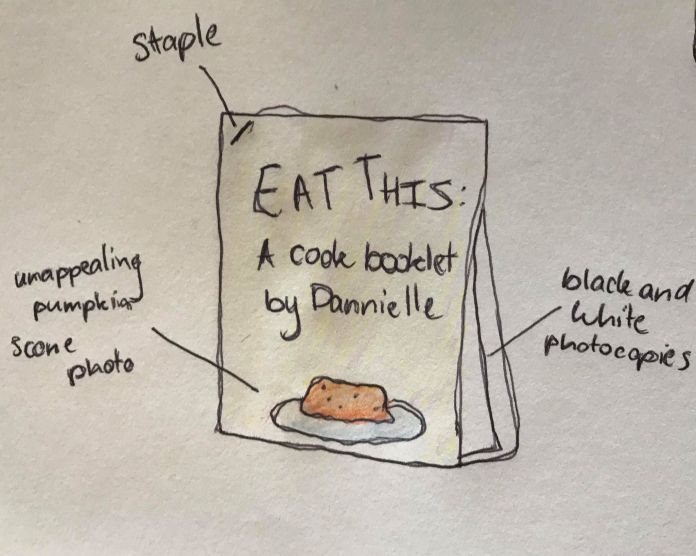 staple
EAT THIS:
A cook booklet
by Dannielle
unappealing
pumpkin
scone
photo
black and
white
photocopies